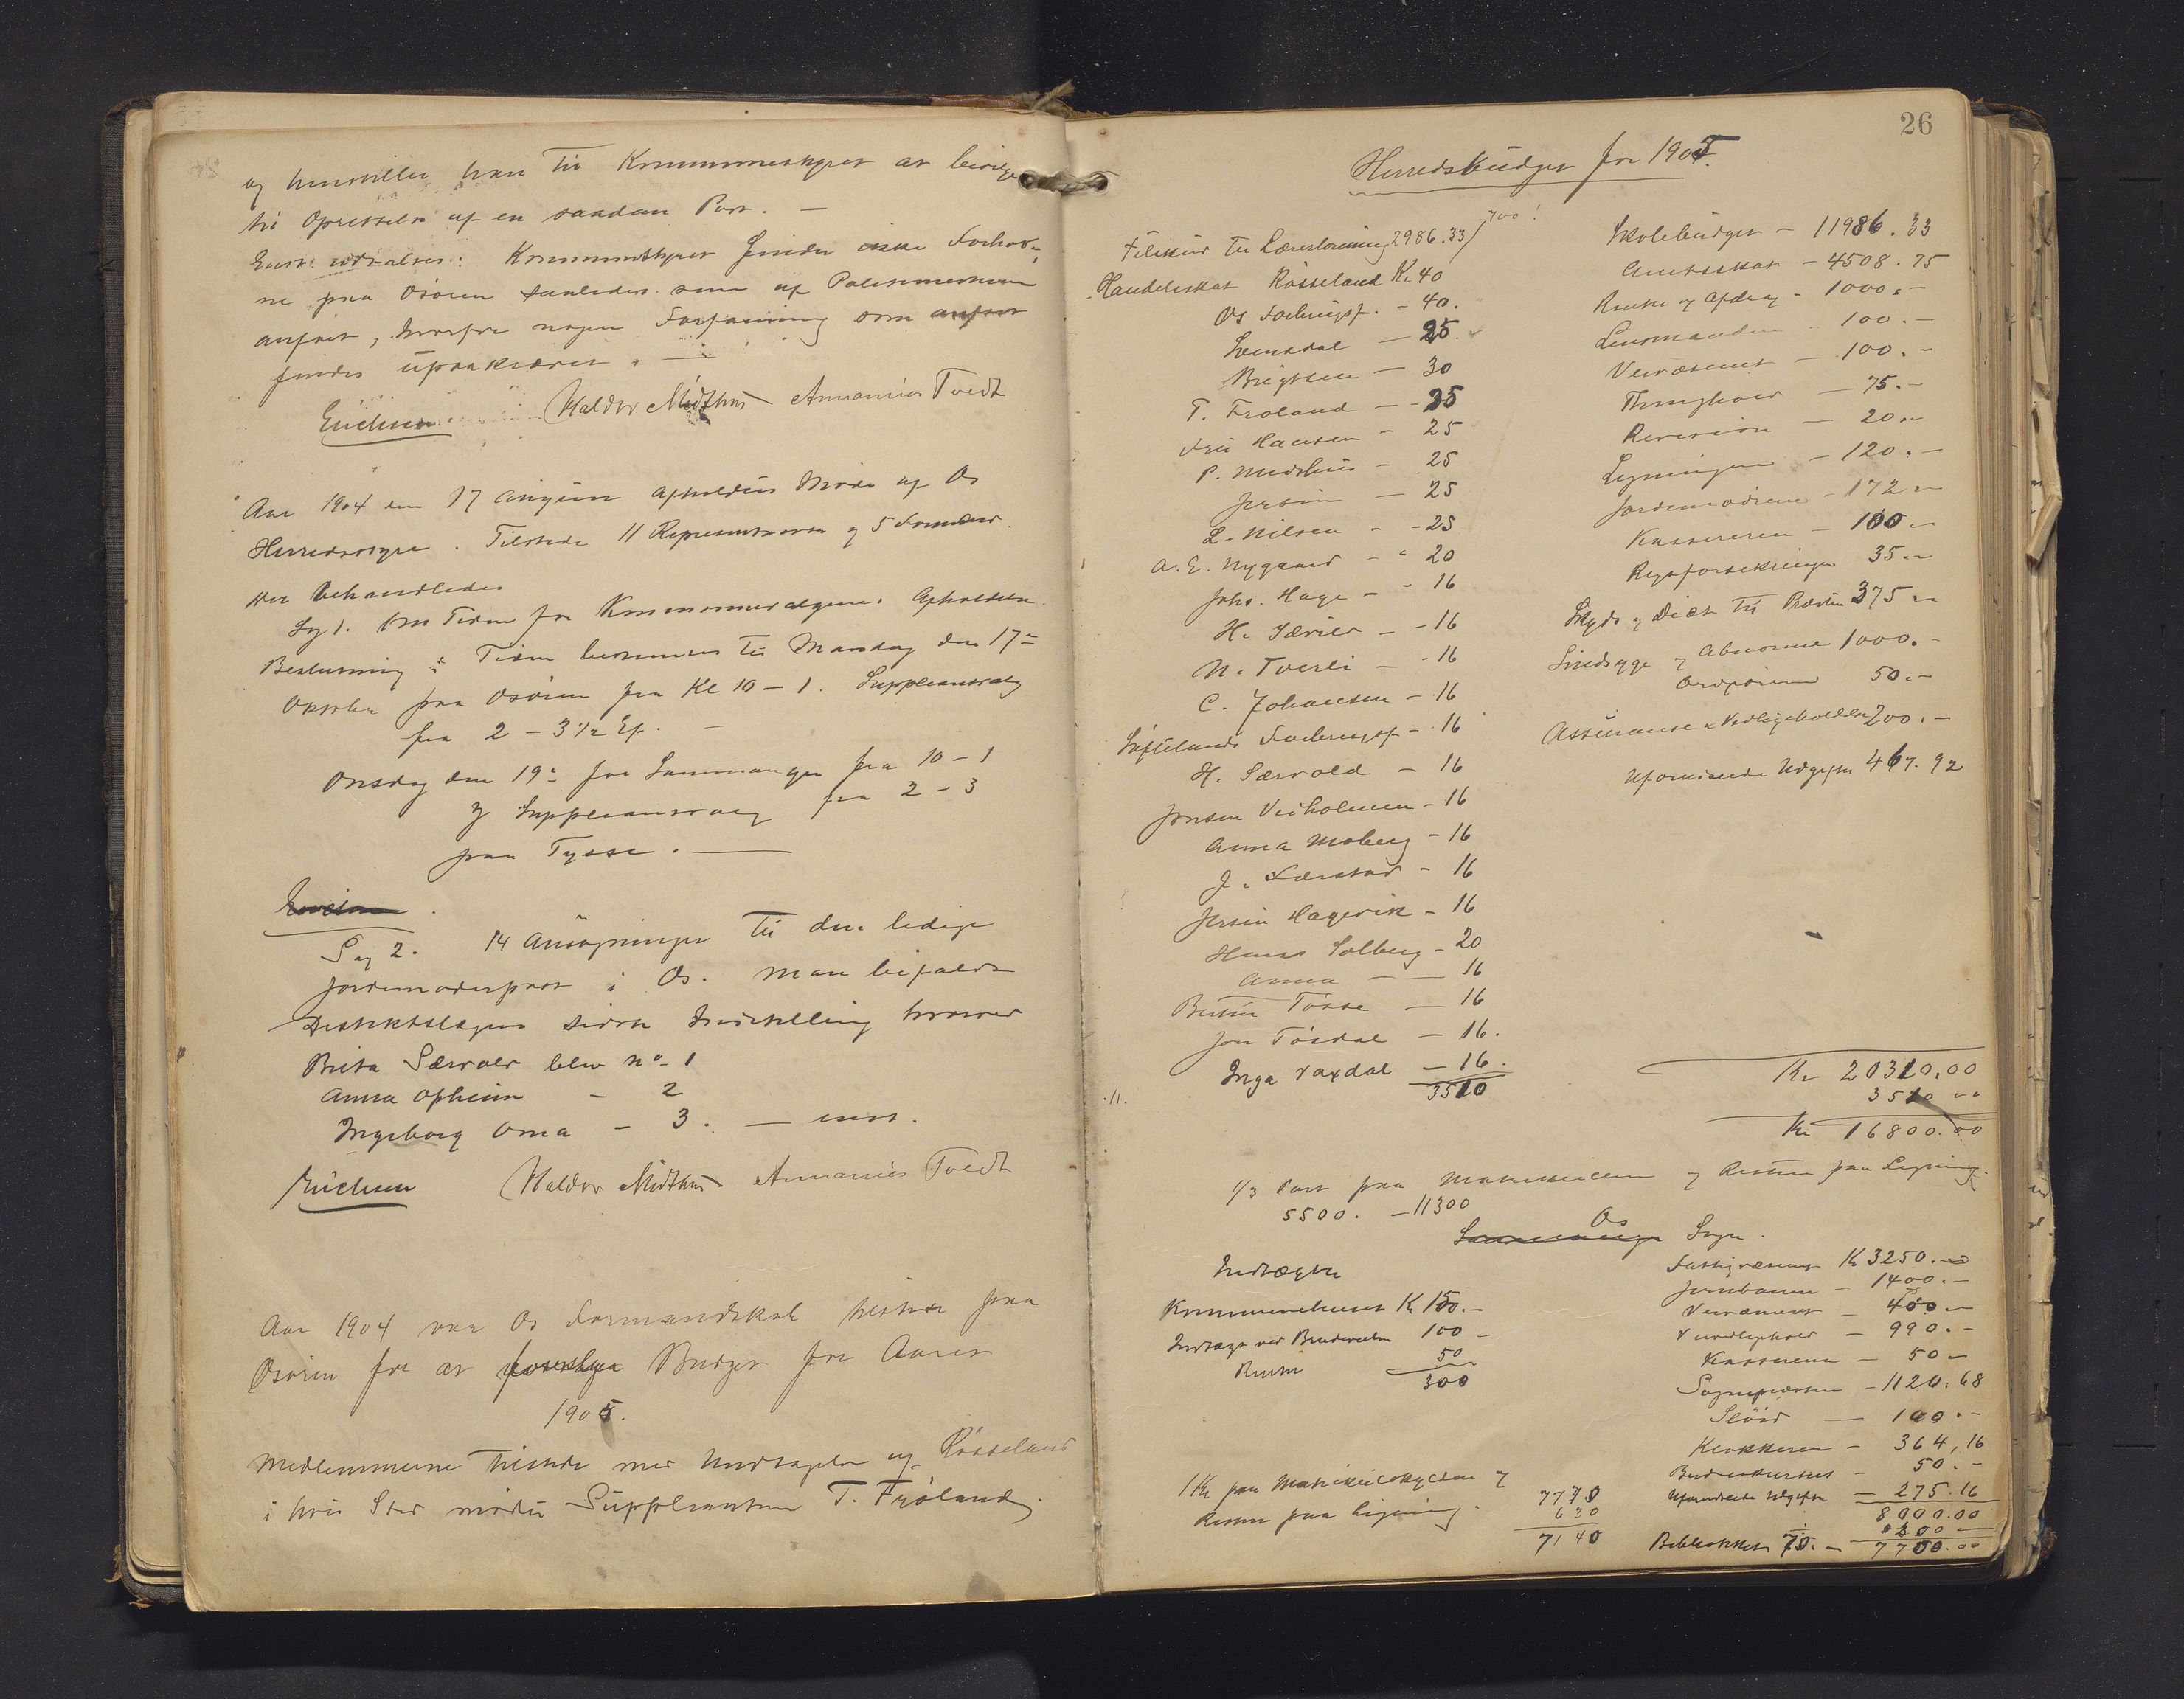 og henstiller han til Kommunestyret at bevilge
til Oprettelse af en saadan Post. —
Enst. vedtaltes: Kommunestyret finder ikke Forhol-
ne paa Osøren saaledes som af Politimesteren
anført, hvorfor nogen Forføining som anført
findes upaakrævet. —
Erichsen Haldor Midthus Annanias Tvedt
Aar 1904 den 17 August afholdtes Møde af Os
Herredsstyre. Tilstede 11 Repræsentanter og 5 Formænd.
Der behandledes
Sag 1. Om Tiden for Kommunevalgenes Afholdelse.
Beslutning: Tiden bestemmes til Mandag den 17de
Oktober paa Osøren fra Kl 10 – 1. Suppleantvalg
fra 2 – 3 1/2 Ef. —
Onsdag den 19de for Sammanger fra 10 – 1
og Suppleantvalg fra 2 – 3
paa Tysse. —
Erichsen.
Sag 2. 14 Ansøgninger til den ledige
Jordemoderpost i Os. Man bifaldt
Distriktslægens Indstilling hvorved
Brita Særvold blev No 1
Anna Opheim – 2
Ingeborg Oma – 3. — enst.
Erichsen Haldor Midthus Annanias Tvedt
Aar 1904 var Os Formandskab tilstede paa
Osøren for at foreslaa Budget for Aaret
1905.
Medlemmerne tilstede med Undtagelse af Røsseland
i hvis Sted mødte Suppleanten T. Frøland.
26
Herredsbudget for 1905.
Tilskud til Lærerlønning 2986.33 / 700!
Handelsskat Røsseland Kr 40
Os Forbrugsf. – 40.
Svensdal – 25.
Brigtsen – 30
T. Frøland – 35
Fru Hansen – 25
P. Midthus – 25
– 25
L. Nilsen – 25
A. E. Nygaard – 20
Johs. Hage – 16
H. – 16
N. Tverli – 16
C. Johansen – 16
Søftelands Forbrugsf – 16
H. Særvold – 16
Jensen Veiholmen – 16
Anna Moberg – 16
J. – 16
Hagevik – 16
Hans Solberg – 20
Anna — 16
Tøsse – 16
Jon Tøsdal – 16.
Inga Vaxdal – 16.
3510
Skolebudget – 11986.33
Amtsskat – 4508.75
Rente og Afdrag – 1000.–
Lensmanden – 100.–
Veivæsenet – 100.–
Thinghold – 75.–
Revision – 20.–
Ligningen – 120.–
Jordemødrene – 172.–
Kassereren – 100.–
Rygsforsikringen 35.–
Skyds og Diet til Præsten 375.–
Sindsyge og Abnorme 1000.–
Ordføreren 50.–
Assurance & Vedligeholdelse 200.–
Uforudseede Udgifter 467.92
Kr 20310.00
3510 --
Kr 16800.00
1/3 Part paa Matrikulen og Resten paa Ligning.
5500. – 11300
Os
Sammanger Sogn.
Indtægter
Kommunehuset Kr 150.–
100 –
Renter 50
300
Fattigvæsenet Kr 3250.–
Jernbanen – 1400.–
Veivæsenet – 400.–
Veivedligehold – 990.–
Kassereren – 50 –
Sognepræsten – 1120.68
Sløid — 100.–
Klokkeren – 364,16
– 50.–
Uforudseete Udgifter – 275.16
8000.00
300 –
Bibliotheket 70.– 7700.00
1 Kr paa Matrikulskylden og
Resten paa Ligning.
7770
630
7140